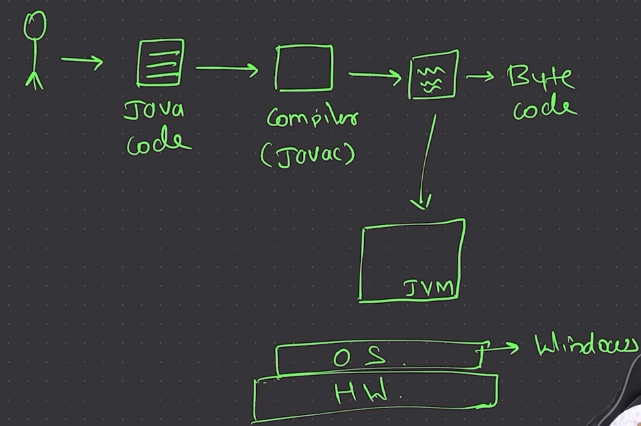 Java
code
Compiler
(Javac)
Byte
code
JVM
OS.
HW.
Windows